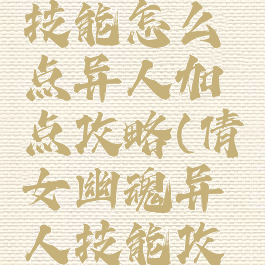 技能怎么
点异人加
点攻略(倩
女幽魂异
人技能攻